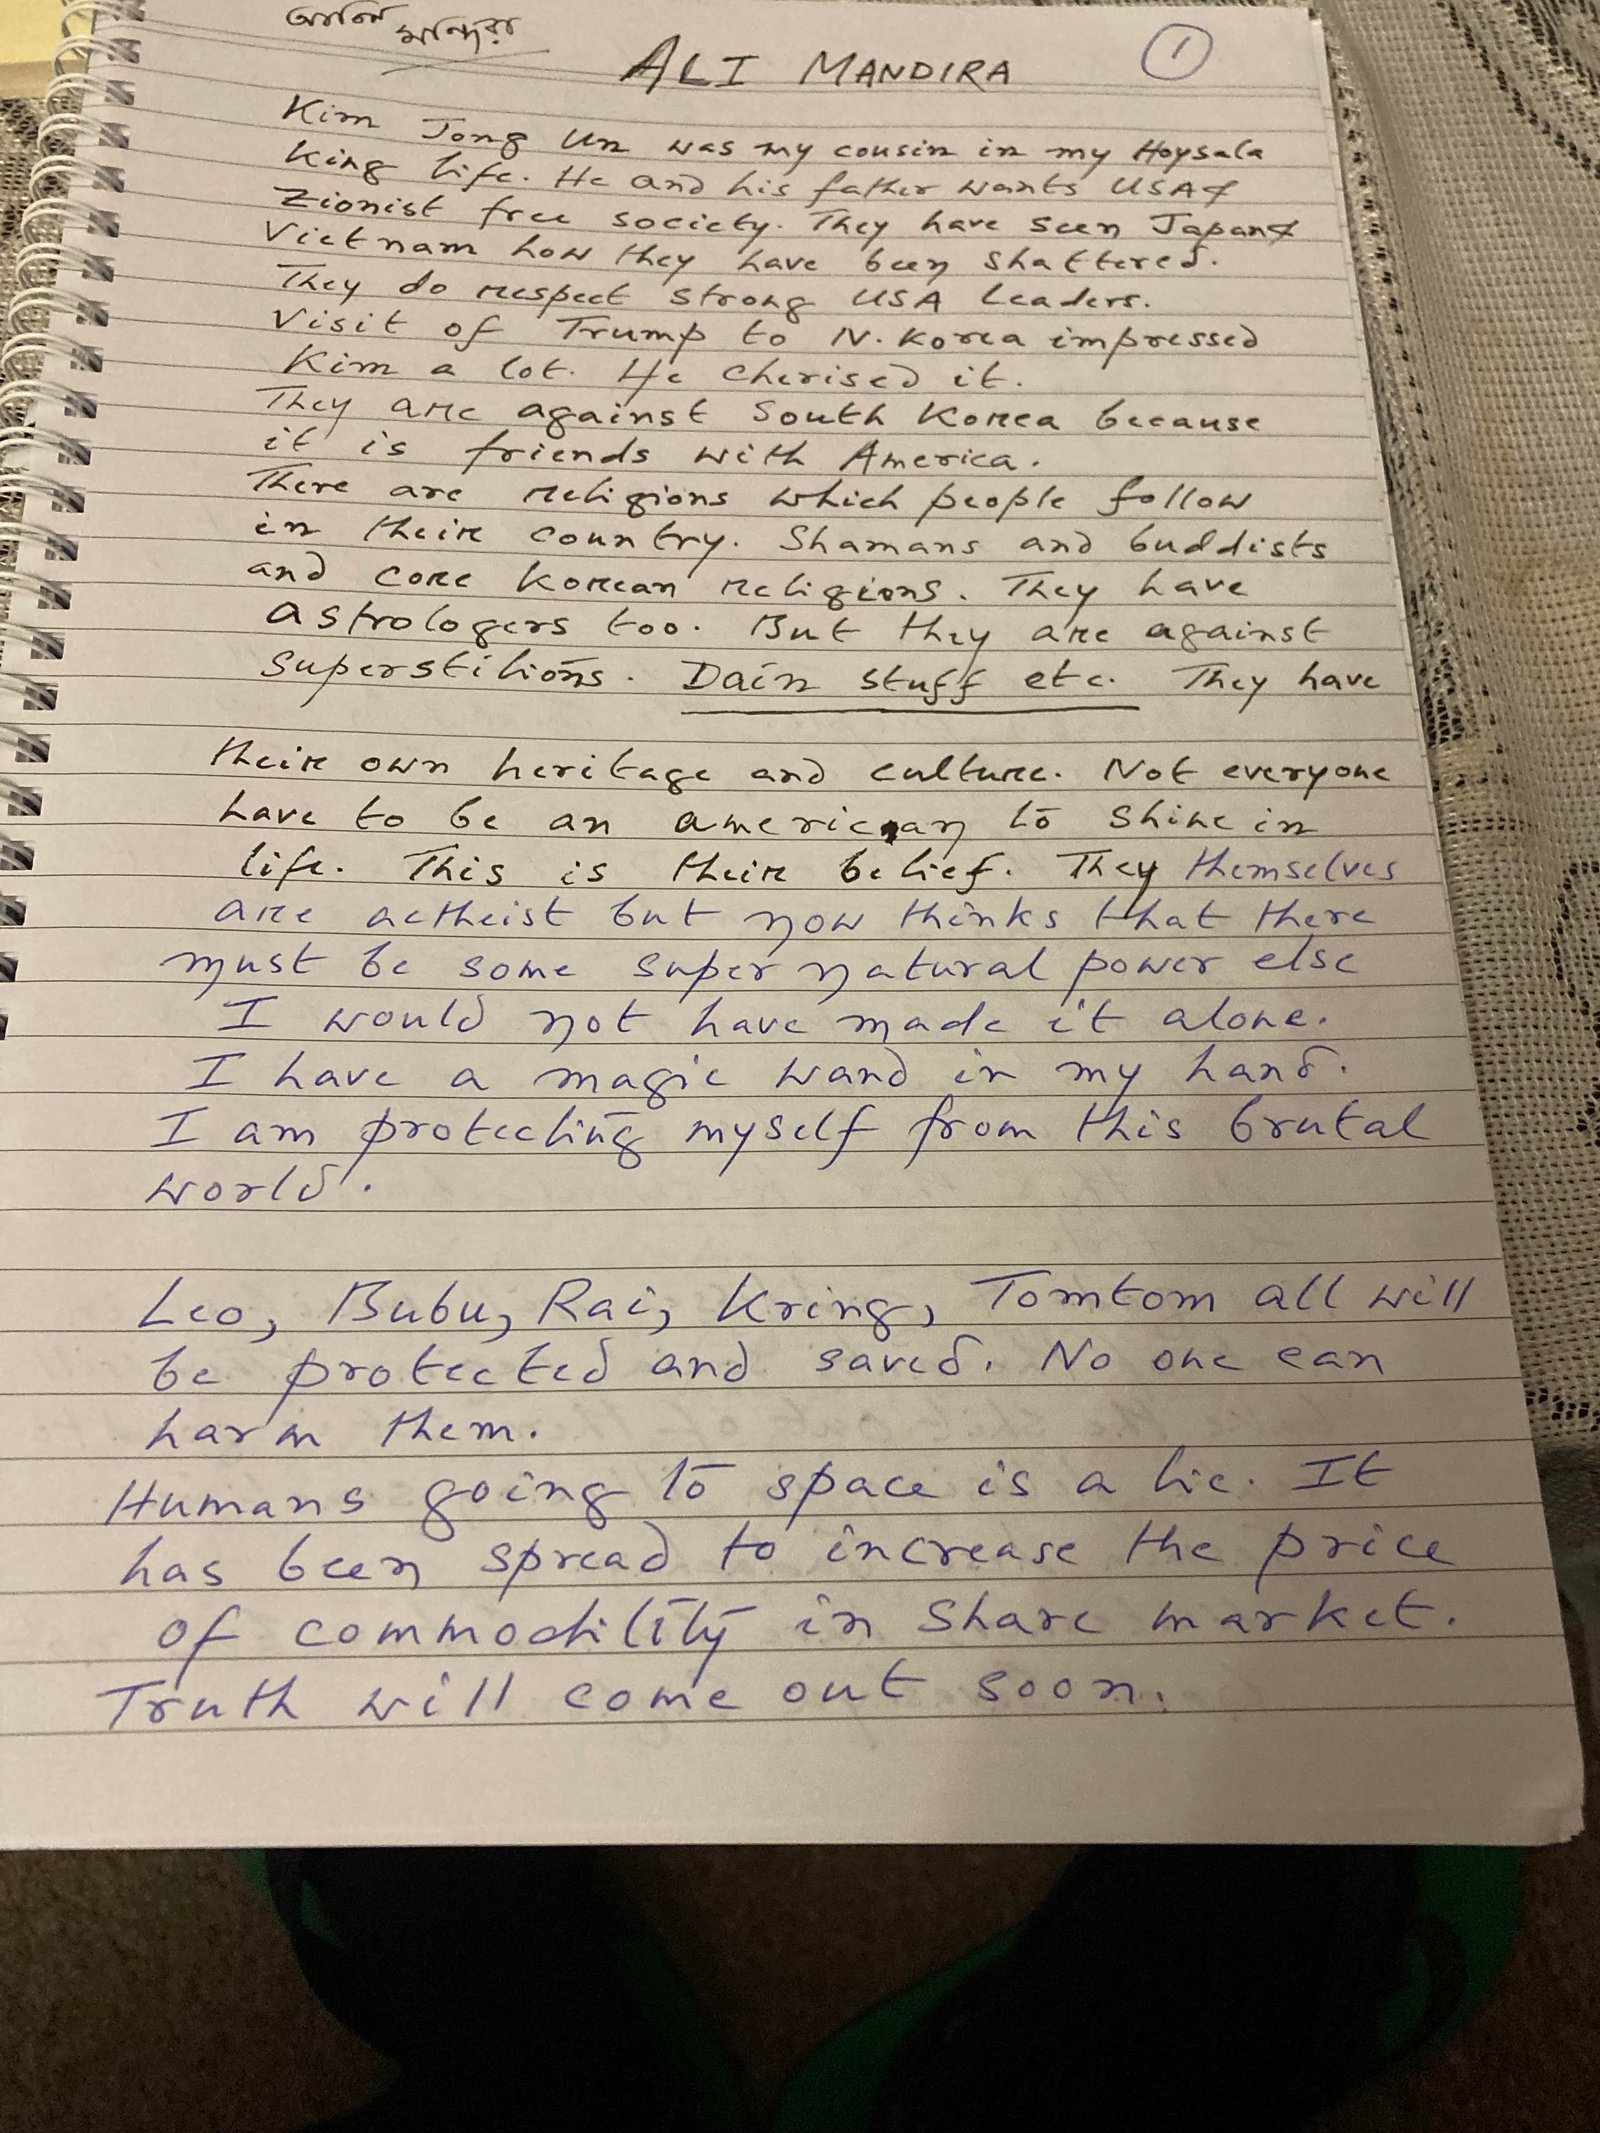 ALI MANDIRA
1
Kim Jong Un was my cousin in my Hoysala
King life. He and his father wants USA &
Zionist free society. They have seen Japan &
Vietnam how they have been shattered.
They do respect strong USA leaders.
Visit of Trump to N. Korea impressed
Kim a lot. He cherised it.
They are against South Korea because
it is friends with America.
There are religions which people follow
in their country. Shamans and buddists
and core Korean religions. They have
astrologers too. But they are against
superstitions. Dain stuff etc. They have
their own heritage and culture. Not everyone
have to be an american to shine in
life. This is their belief. They themselves
are aetheist but now thinks that there
must be some super natural power else
I would not have made it alone.
I have a magic wand in my hand.
I am protecting myself from this brutal
world.
Leo, Bubu, Rai, Kring, Tomtom all will
be protected and saved. No one can
harm them.
Humans going to space is a lie. It
has been spread to increase the price
of commodility in share market.
Truth will come out soon.